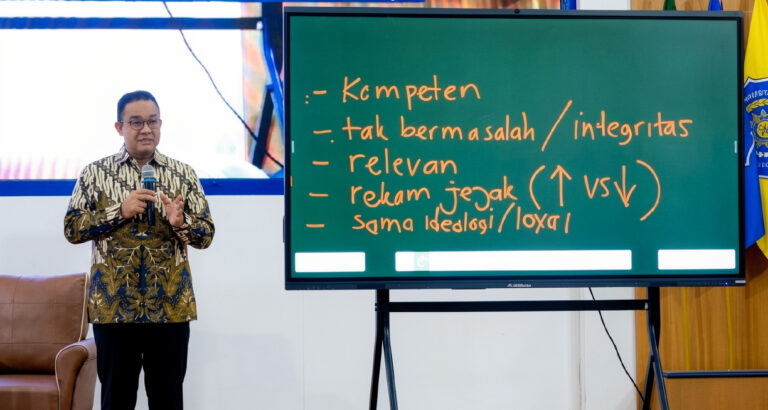 :- Kompeten
- tak bermasalah / integritas
- relevan
- rekam jejak (↑ vs ↓)
- sama ideologi/loyal